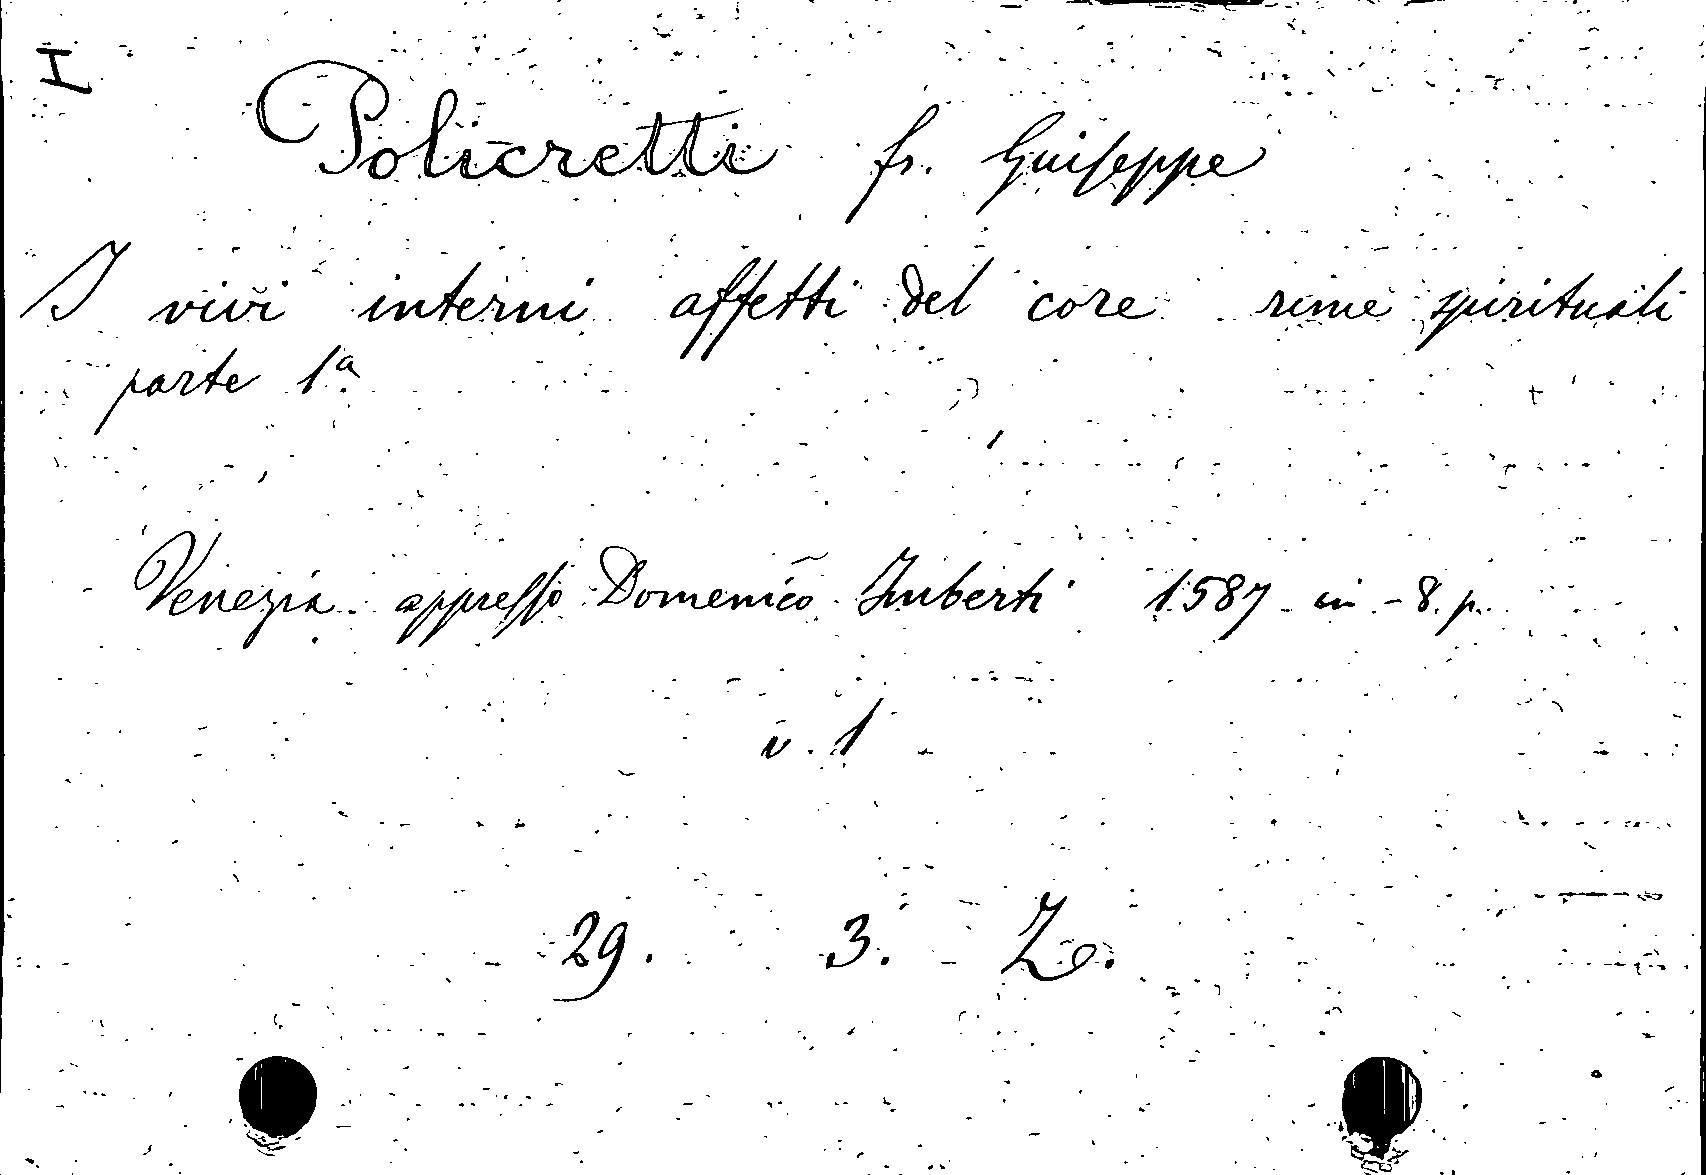 I
Policretti fr. Guiseppe
I vivi interni affetti del core rime spirituali
parte 1ª
Venezia appresso Domenico Imberti 1587 in-8. p.
v. 1
29. 3. Z.